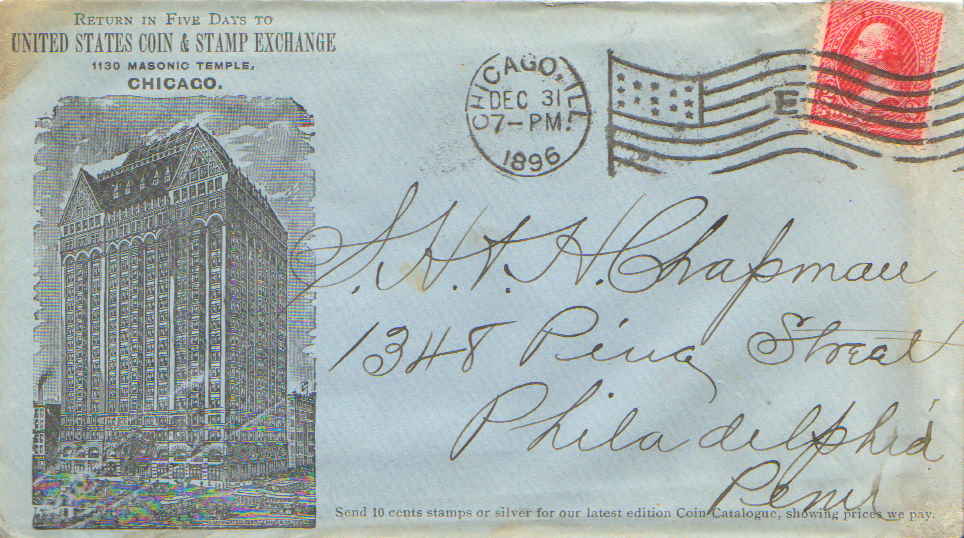 RETURN IN FIVE DAYS TO
UNITED STATES COIN & STAMP EXCHANGE
1130 MASONIC TEMPLE,
CHICAGO.
CHICAGO, ILL.
DEC 31
7-PM
1896
E
S. H. & H. Chapman
1348 Pine Street
Philadelphia
Penn
Send 10 cents stamps or silver for our latest edition Coin Catalogue, showing prices we pay.